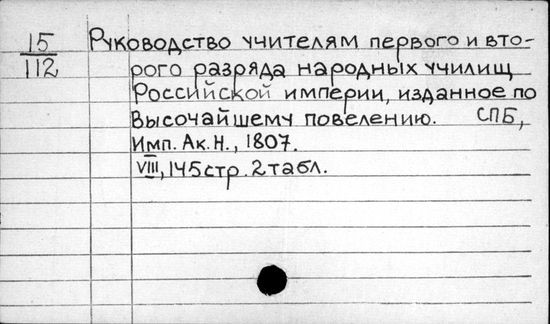 15 Руководство учителям первого и вто-
112 рого разряда народных училищ
Российской империи, изданное по
Высочайшему повелению. СПБ,
Имп. Ак. Н., 1807.
VIII, 145 стр. 2 табл.